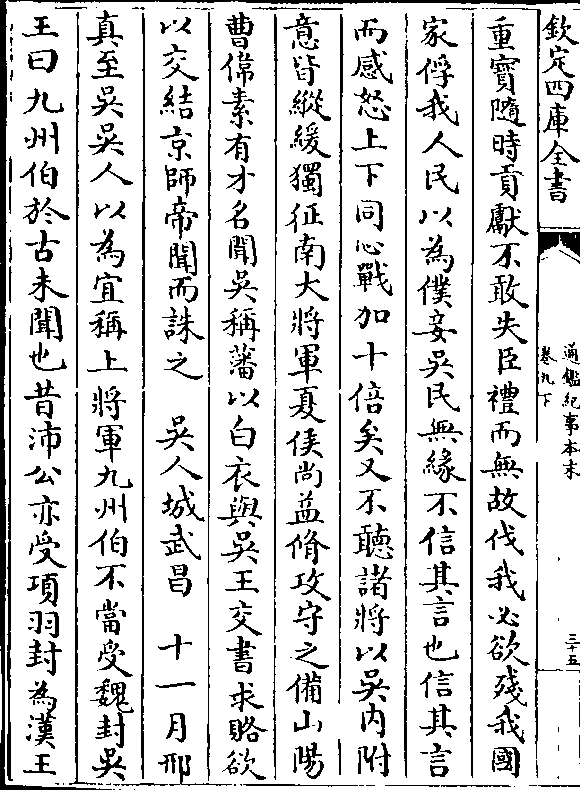 欽定四庫全書
通鑑紀事本末
卷九下
三十五
重寶隨時貢獻不敢失臣禮而無故伐我必欲殘我國
家俘我人民以為僕妾吳民無緣不信其言也信其言
而感怒上下同心戰加十倍矣又不聽諸將以吳內附
意皆縱緩獨征南大將軍夏侯尚益脩攻守之備山陽
曹偉素有才名聞吳稱藩以白衣與吳王交書求賂欲
以交結京師帝聞而誅之　吳人城武昌　十一月邢
真至吳吳人以為宜稱上將軍九州伯不當受魏封吳
王曰九州伯於古未聞也昔沛公亦受項羽封為漢王